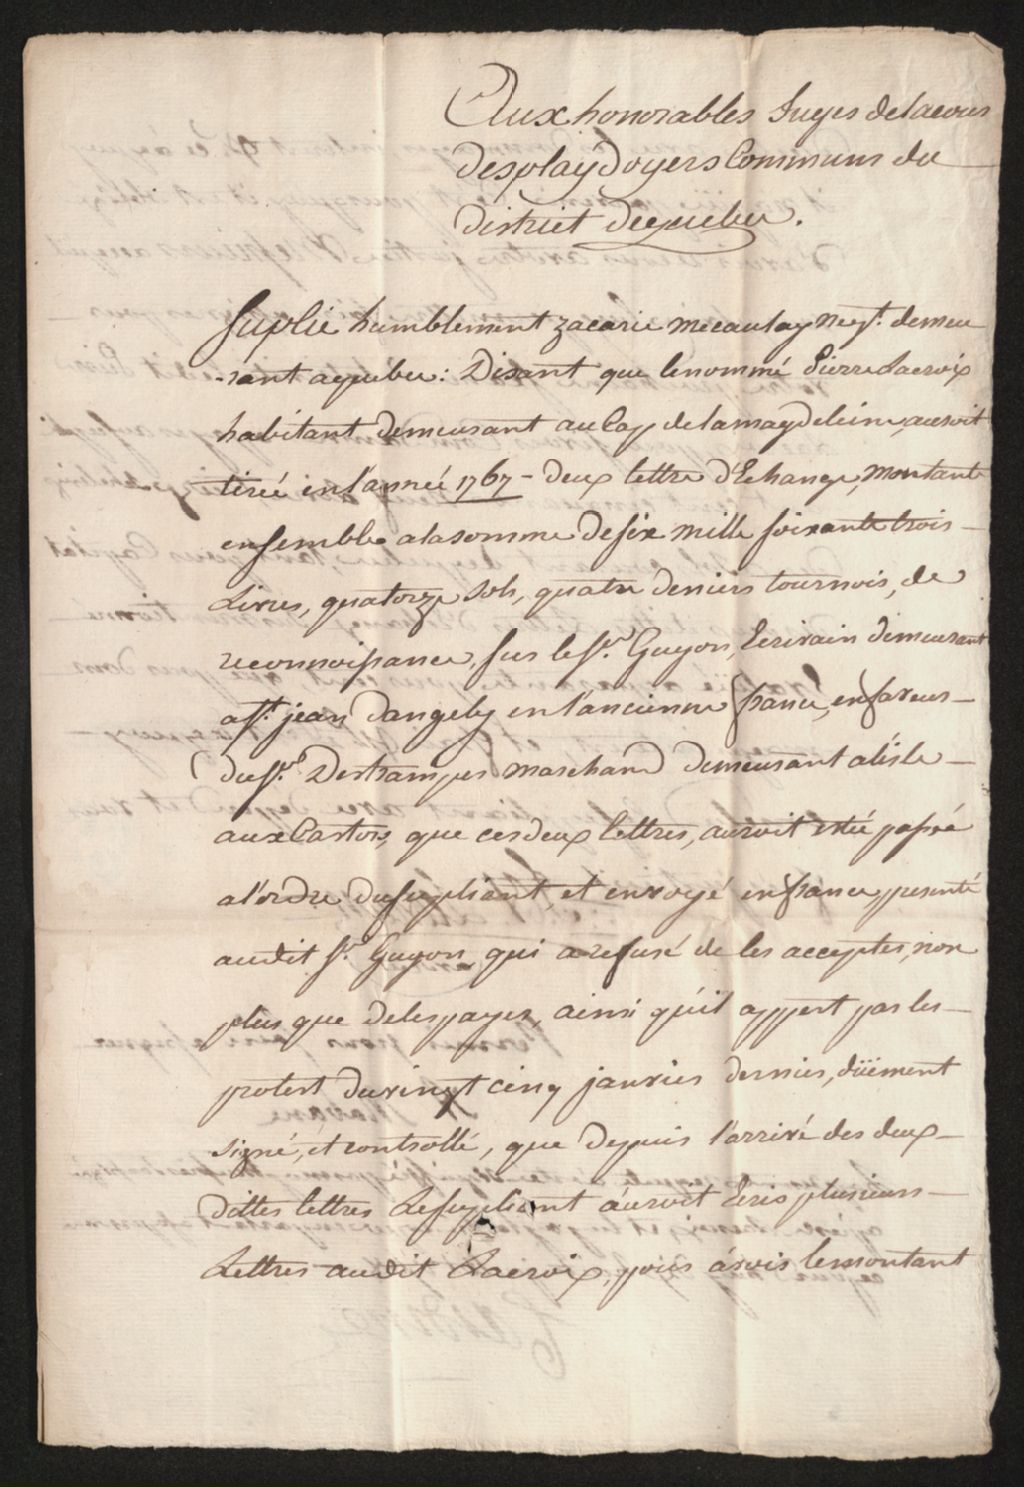 Aux honorables Juges de la cour
des playdoyers Communs du
District de quebec.
Suplie humblement zacarie mecaulay negt. demeu
-rant a quebec: Disant que le nommé Pierre Lacroix
habitant demeurant au Cap de la magdeleine, auroit
tireé en l'année 1767 - deux lettre d'Echange, montant
ensemble a la somme de six mille soixante trois -
Livres, quatorze sols, quatre deniers tournois, de
reconnoissance, sur le Sr. Guyon, Ecrivain demeurant
a St. jean dangely en l'ancienne france, en faveur -
du Sr. Deschamps marchand demeurant a l'isle -
aux Castors, que ces deux lettres, auroit estée passé
a l'ordre du supliant, et envoyé en france, presenté
audit Sr. Guyon, qui a refusé de les accepter, non
plus que de les payer, ainsi qu'il appert par les -
protest du vingt cinq janvier dernier, düement
signé, et controllé, que depuis l'arrivé des deux -
dittes lettres Le supliant áuroit Ecris plusieurs -
Lettres audit Lacroix, pour ávoir le montant